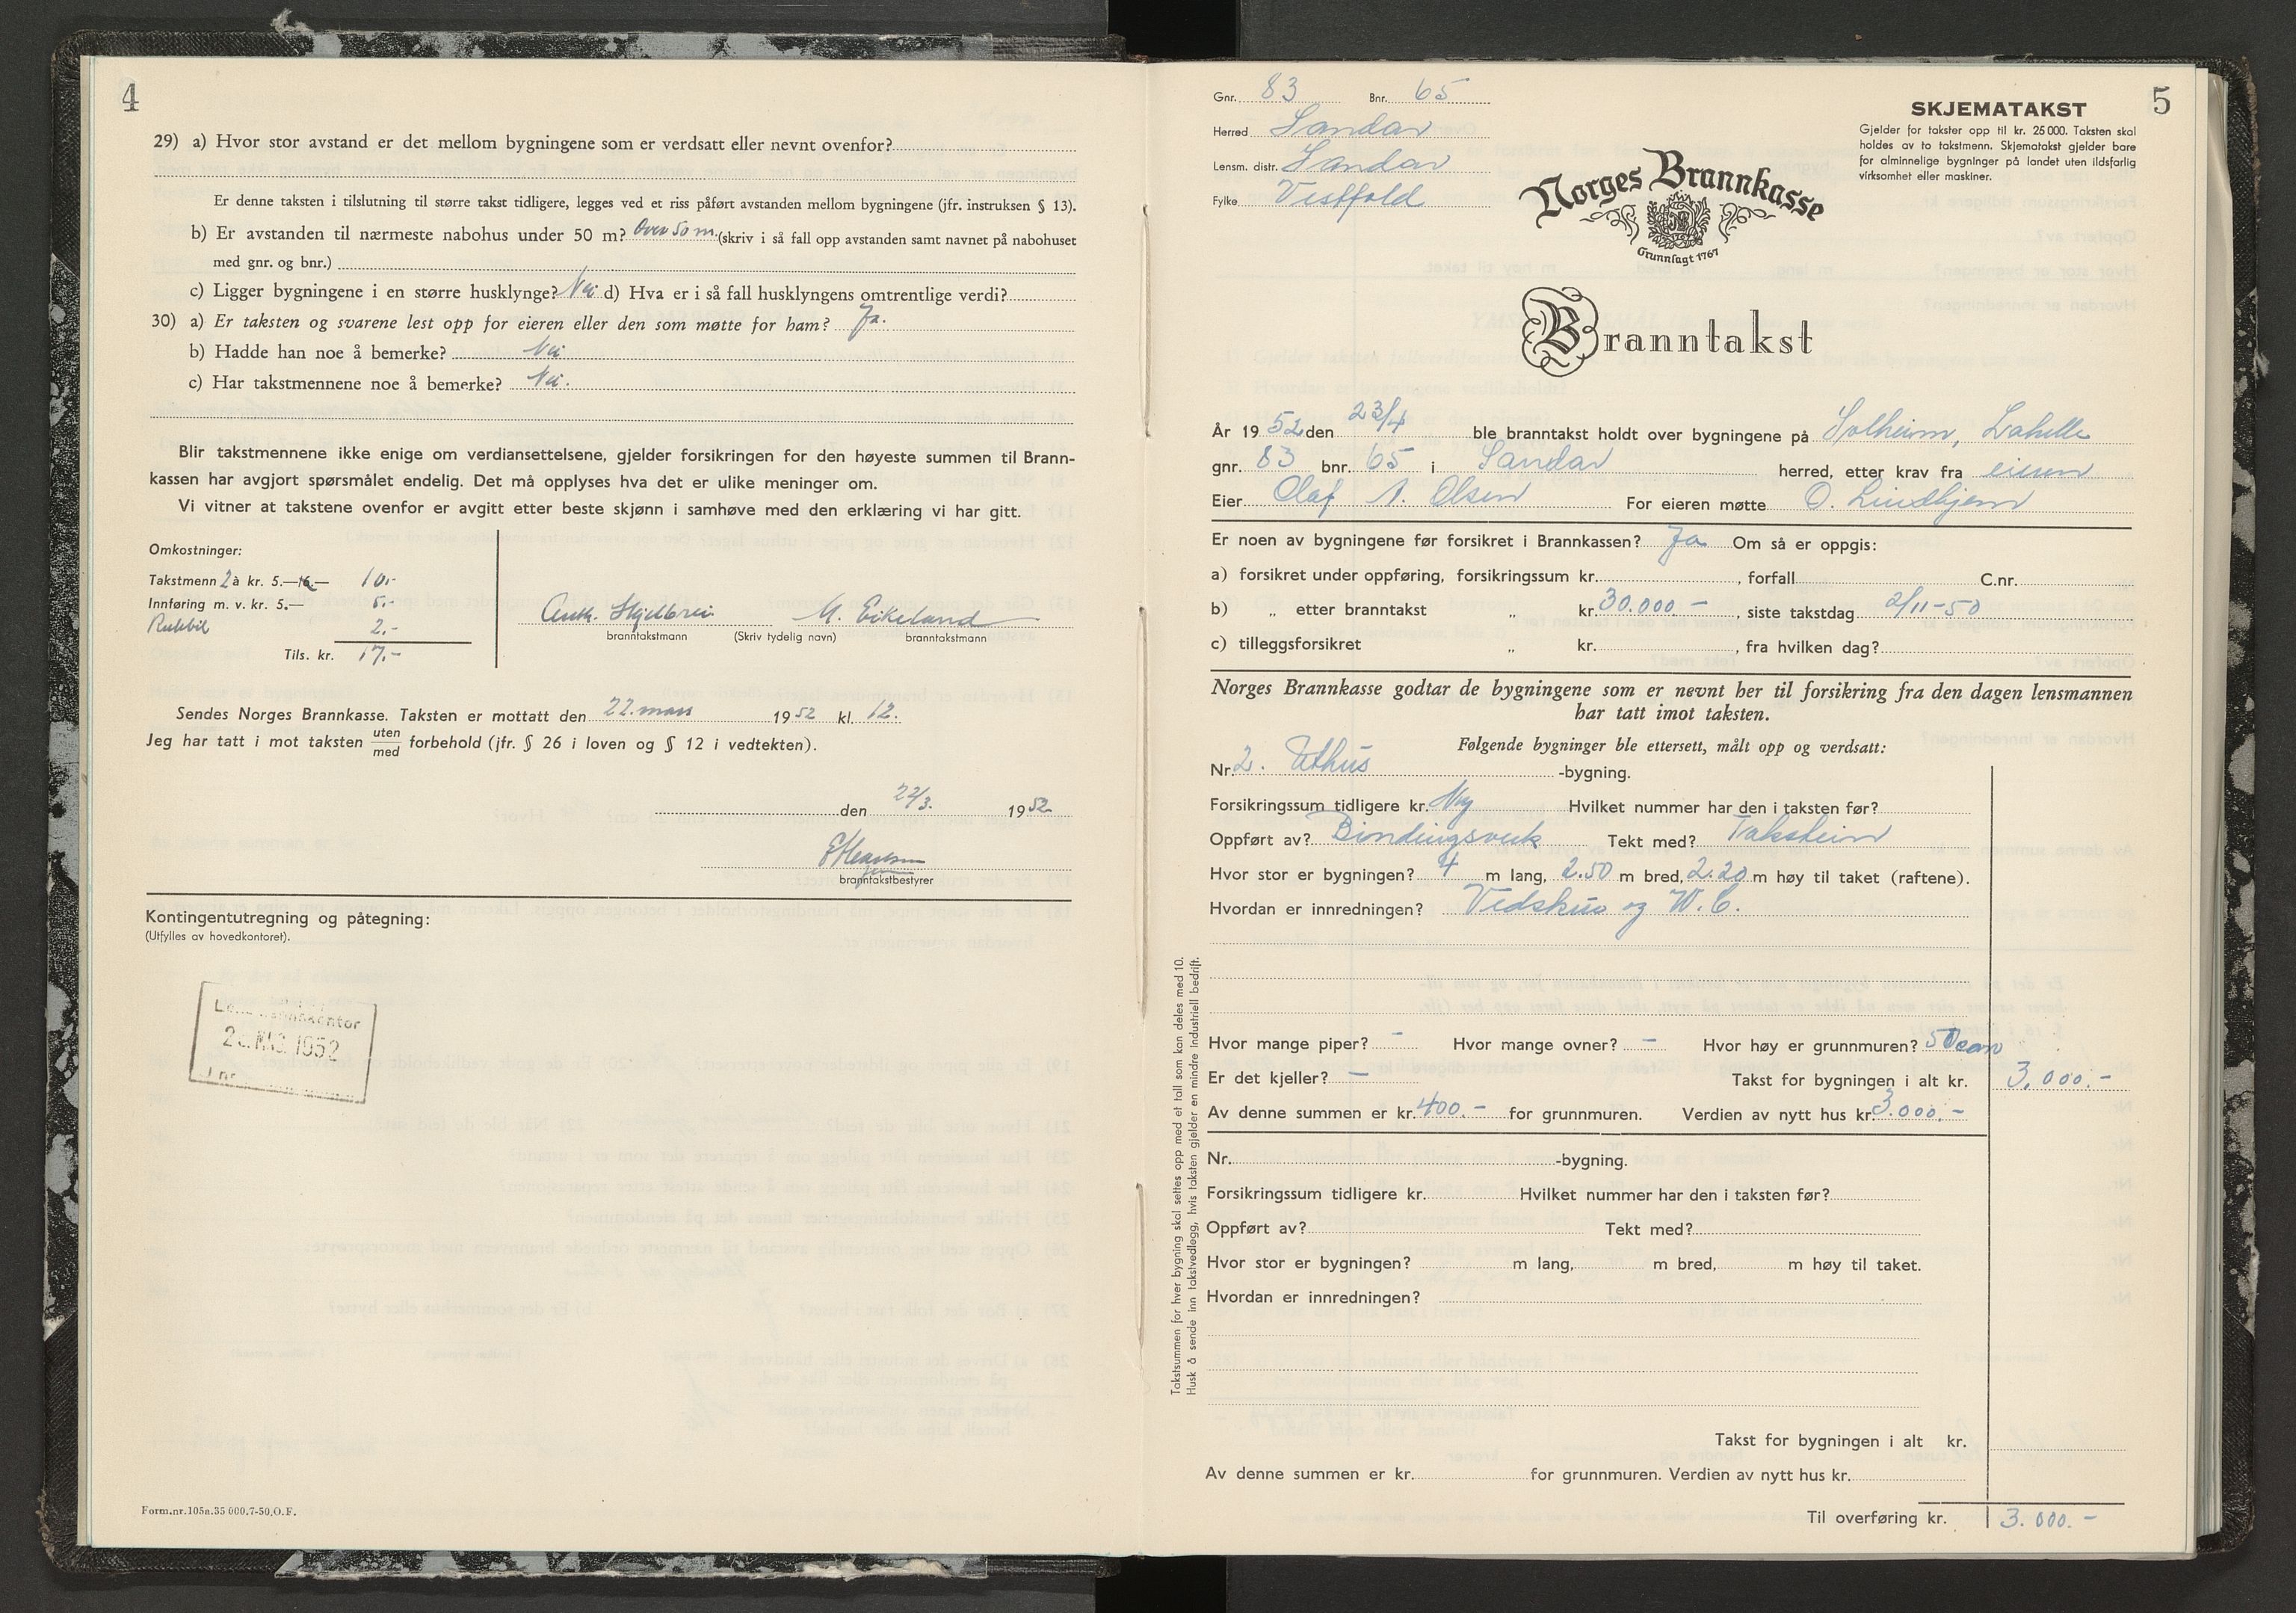 4
29) a) Hvor stor avstand er det mellom bygningene som er verdsatt eller nevnt ovenfor?
Er denne taksten i tilslutning til større takst tidligere, legges ved et riss påført avstanden mellom bygningene (jfr. instruksen § 13).
b) Er avstanden til nærmeste nabohus under 50 m? Over 50 m. (skriv i så fall opp avstanden samt navnet på nabohuset
med gnr. og bnr.)
c) Ligger bygningene i en større husklynge? Nei d) Hva er i så fall husklyngens omtrentlige verdi?
30) a) Er taksten og svarene lest opp for eieren eller den som møtte for ham? Ja.
b) Hadde han noe å bemerke? Nei
c) Har takstmennene noe å bemerke? Nei.
Blir takstmennene ikke enige om verdiansettelsene, gjelder forsikringen for den høyeste summen til Brann-
kassen har avgjort spørsmålet endelig. Det må opplyses hva det er ulike meninger om.
Vi vitner at takstene ovenfor er avgitt etter beste skjønn i samhøve med den erklæring vi har gitt.
Omkostninger:
Takstmenn 2 à kr. 5.— 10.-
Innføring m. v. kr. 5.— 5.-
2.-
Tils. kr. 17.-
Anth. M. Eikeland
branntakstmann (Skriv tydelig navn) branntakstmann
Sendes Norges Brannkasse. Taksten er mottatt den 22. mars 1952 kl. 12.
Jeg har tatt i mot taksten uten/med forbehold (jfr. § 26 i loven og § 12 i vedtekten).
den 22/3. 1952
branntakstbestyrer
Kontingentutregning og påtegning:
(Utfylles av hovedkontoret).
1952
J.nr.
Form.nr.105a.35 000.7-50.O.F.
5
Gnr. 83 Bnr. 65
Herred Sandar
Lensm. distr. Sandar
Fylke Vestfold
SKJEMATAKST
Gjelder for takster opp til kr. 25 000. Taksten skal
holdes av to takstmenn. Skjematakst gjelder bare
for alminnelige bygninger på landet uten ildsfarlig
virksomhet eller maskiner.
Norges Brannkasse
Grunnlagt 1767
Branntakst
År 1952 den 23/4 ble branntakst holdt over bygningene på Solheim, Lahelle
gnr. 83 bnr. 65 i Sandar herred, etter krav fra eieren
Eier Olaf A. Olsen For eieren møtte O. Lindhjem
Er noen av bygningene før forsikret i Brannkassen? Ja Om så er oppgis:
a) forsikret under oppføring, forsikringssum kr. , forfall C.nr.
b) „ etter branntakst „ kr. 30.000 - , siste takstdag 2/11-50
c) tilleggsforsikret „ kr. , fra hvilken dag?
Norges Brannkasse godtar de bygningene som er nevnt her til forsikring fra den dagen lensmannen
har tatt imot taksten.
Følgende bygninger ble ettersett, målt opp og verdsatt:
Nr. 2. Uthus -bygning.
Forsikringssum tidligere kr. Ny Hvilket nummer har den i taksten før?
Oppført av? Bindingsverk Tekt med? Takstein
Hvor stor er bygningen? 4 m lang, 2.50 m bred, 2.20 m høy til taket (raftene).
Hvordan er innredningen? Vedskur og W.C.
Hvor mange piper? - Hvor mange ovner? - Hvor høy er grunnmuren? 50 cm
Er det kjeller? - Takst for bygningen i alt kr. 3.000.-
Av denne summen er kr. 400.- for grunnmuren. Verdien av nytt hus kr. 3.000.-
Nr. -bygning.
Forsikringssum tidligere kr. Hvilket nummer har den i taksten før?
Oppført av? Tekt med?
Hvor stor er bygningen? m lang, m bred, m høy til taket.
Hvordan er innredningen?
Takst for bygningen i alt kr.
Av denne summen er kr. for grunnmuren. Verdien av nytt hus kr.
Til overføring kr. 3.000.-
Takstsummen for hver bygning skal settes opp med et tall som kan deles med 10.
Husk å sende inn takstvedlegg, hvis taksten gjelder en mindre industriell bedrift.